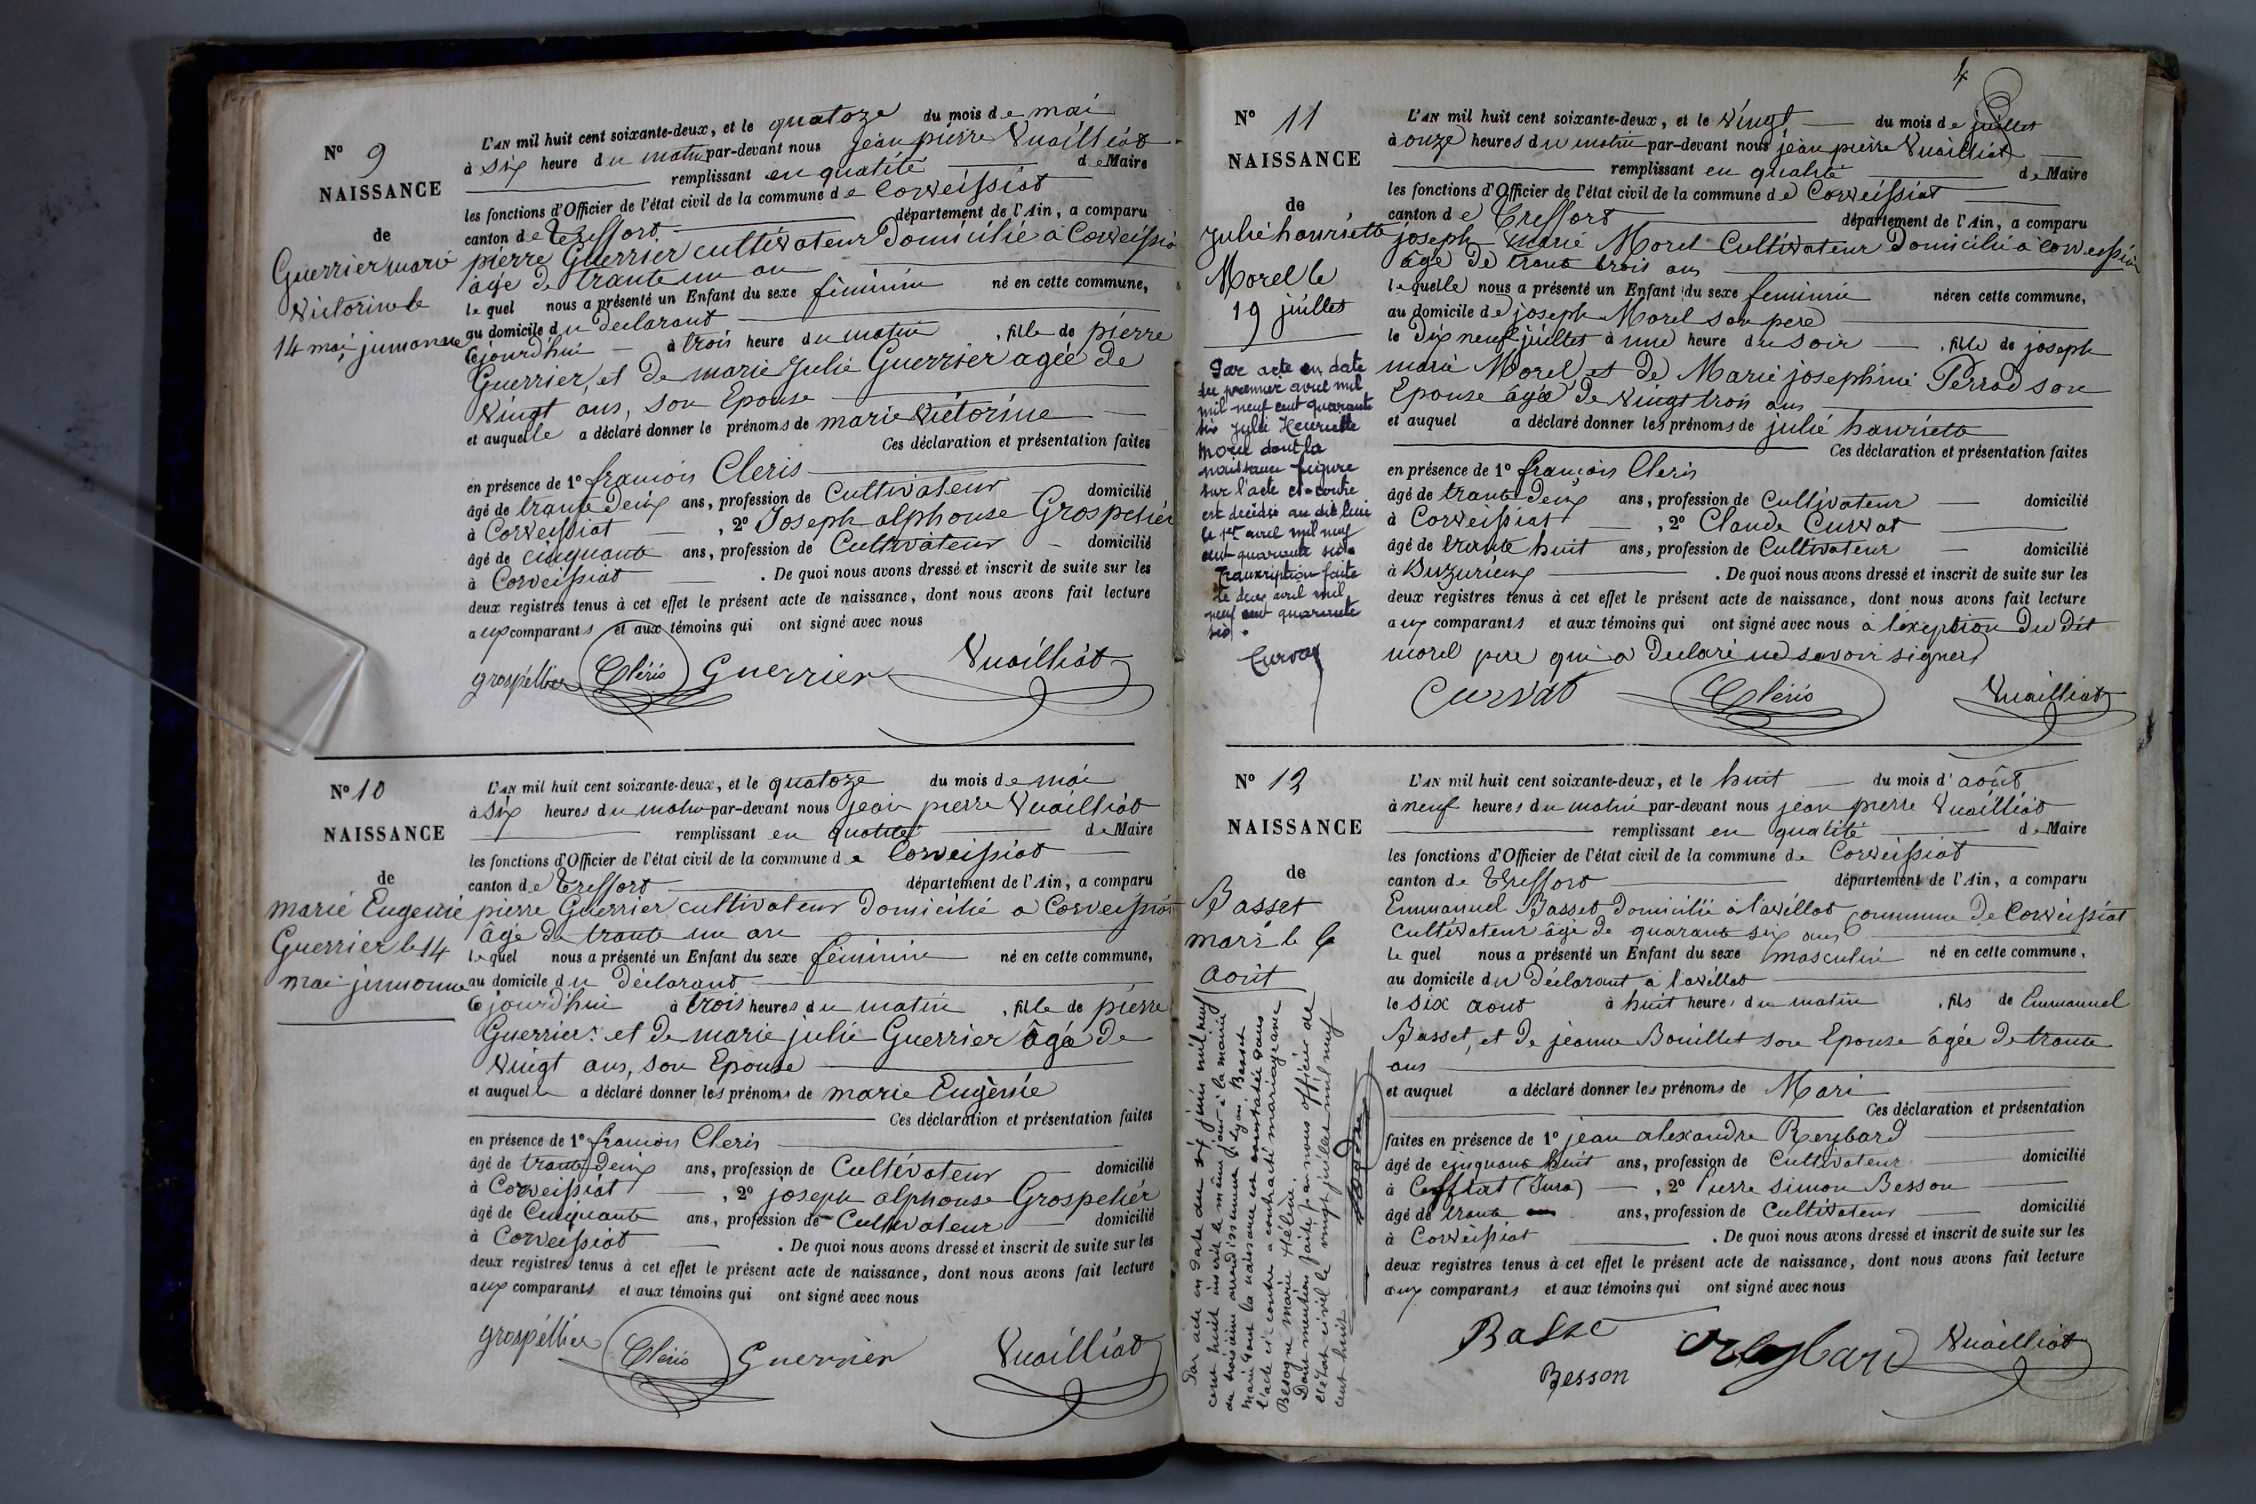 N° 9
NAISSANCE
de
Guerrier marie
Victorine le
14 mai jumonne
L'AN mil huit cent soixante-deux, et le quatoze du mois de mai
à six heure du matin par-devant nous jean pierre Vuailliat
remplissant en qualité de Maire
les fonctions d'Officier de l'état civil de la commune de Corveissiat
canton de Treffort département de l'Ain, a comparu
pierre Guerrier cultivateur Domicilié a Corveissia
âgé de trante un an
le quel nous a présenté un Enfant du sexe féminin né en cette commune,
au domicile du Déclarant
cejourd'hui à trois heure du matin , fille de pierre
Guerrier, et de marie Julie Guerrier agée de
Vingt ans, son Epouse
et auquelle a déclaré donner le prénoms de marie Victorine
Ces déclaration et présentation faites
en présence de 1° francois Cleris
âgé de trante deux ans, profession de Cultivateur domicilié
à Corveissiat , 2° Joseph alphonse Grospelier
âgé de cinquante ans, profession de Cultivateur domicilié
à Corveissiat . De quoi nous avons dressé et inscrit de suite sur les
deux registres tenus à cet effet le présent acte de naissance, dont nous avons fait lecture
aux comparants et aux témoins qui ont signé avec nous
grospellier Cléris Guerrier Vuailliat
N° 10
NAISSANCE
de
marie Eugenie
Guerrier le 14
mai jumonne
L'AN mil huit cent soixante-deux, et le quatoze du mois de mai
à six heures du matin par-devant nous jean pierre Vuailliat
remplissant en qualité de Maire
les fonctions d'Officier de l'état civil de la commune de Corveissiat
canton de Treffort département de l'Ain, a comparu
pierre Guerrier cultivateur Domicilié a Corveissiat
âgé de trante un an
le quel nous a présenté un Enfant du sexe féminin né en cette commune,
au domicile du Déclarant
cejourd'hui à trois heures du matin , fille de pierre
Guerrier et de marie julie Guerrier âgée De
Vingt ans, son Epouse
et auquelle a déclaré donner les prénoms de marie Eugènie
Ces déclaration et présentation faites
en présence de 1° francois Cleris
âgé de trante deux ans, profession de Cultivateur domicilié
à Corveissiat , 2° joseph alphonse Grospeliér
âgé de Cinquante ans, profession de Cultivateur domicilié
à Corveissiat . De quoi nous avons dressé et inscrit de suite sur les
deux registres tenus à cet effet le présent acte de naissance, dont nous avons fait lecture
aux comparants et aux témoins qui ont signé avec nous
grospéllier Cléris Guerrier Vuailliat
4
N° 11
NAISSANCE
de
julie hanriette
Morel le
19 juillet
Par acte en date
du premier avril mil
mil neuf cent quarante
six Julie Henriette
Morel dont la
naissance figure
sur l'acte ci-contre
est décédée au dit lieu
le 1er avril mil neuf
cent quarante six.
Transcription faite
le deux avril mil
neuf cent quarante
six.
Curvat
L'AN mil huit cent soixante-deux, et le Vingt du mois de juillet
à onze heures du matin par-devant nous jean pierre Vuailliat
remplissant en qualité de Maire
les fonctions d'Officier de l'état civil de la commune de Corveissiat
canton de Treffort département de l'Ain, a comparu
joseph marie Morel Cultivateur Domicilié a Corveissiat
âgé de trante trois ans
lequelle nous a présenté un Enfant du sexe feminin né en cette commune,
au domicile de joseph Morel son pere
le Dix neuf juillet à une heure du soir , fille de joseph
marie Morel et de Marie josephine Perrod son
Epouse âgée de vingt trois ans
et auquel a déclaré donner les prénoms de julie hanriette
Ces déclaration et présentation faites
en présence de 1° françois Cleris
âgé de trante Deux ans, profession de Cultivateur domicilié
à Corveissiat , 2° Claude Curvat
âgé de trante huit ans, profession de Cultivateur domicilié
à Duzurieux . De quoi nous avons dressé et inscrit de suite sur les
deux registres tenus à cet effet le présent acte de naissance, dont nous avons fait lecture
aux comparants et aux témoins qui ont signé avec nous a l'exeption Du Dit
morel pere qui a Declaré ne savoir signer
Curvat Cléris Vuailliat
N° 12
NAISSANCE
de
Basset
mari le 6
août
Par acte en date du six juin mil neuf
cent huit inscrit le même jour à la mairie
du troisième arrondissement de Lyon, Basset
Mari dont la naissance est constatée dans
l'acte ci-contre a contracté mariage avec
Besogne Marie Hélène.
Dont mention faite par nous officier de
l'état civil le vingt juillet mil neuf
cent huit.
L'AN mil huit cent soixante-deux, et le huit du mois d'août
à neuf heures du matin par-devant nous jean pierre Vuailliat
remplissant en qualité de Maire
les fonctions d'Officier de l'état civil de la commune de Corveissiat
canton de Treffort département de l'Ain, a comparu
Emmanuel Basset Domicilié a lavillat commune De Corveissiat
cultivateur âgé de quarante six ans
le quel nous a présenté un Enfant du sexe masculin né en cette commune,
au domicile du Déclarant a lavillat
le six aout à huit heures du matin , fils de Emmanuel
Basset, et de jeanne Bouillet son Epouse âgée de trante
ans
et auquel a déclaré donner les prénoms de Mari
Ces déclaration et présentation
faites en présence de 1° jean alexandre Reybard
âgé de cinquante huit ans, profession de Cultivateur domicilié
à Ceffiat (Jura) , 2° Pierre simon Besson
âgé de trante ans, profession de Cultivateur domicilié
à Corveissiat . De quoi nous avons dressé et inscrit de suite sur les
deux registres tenus à cet effet le présent acte de naissance, dont nous avons fait lecture
aux comparants et aux témoins qui ont signé avec nous
Basse Reybard Vuailliat
Besson